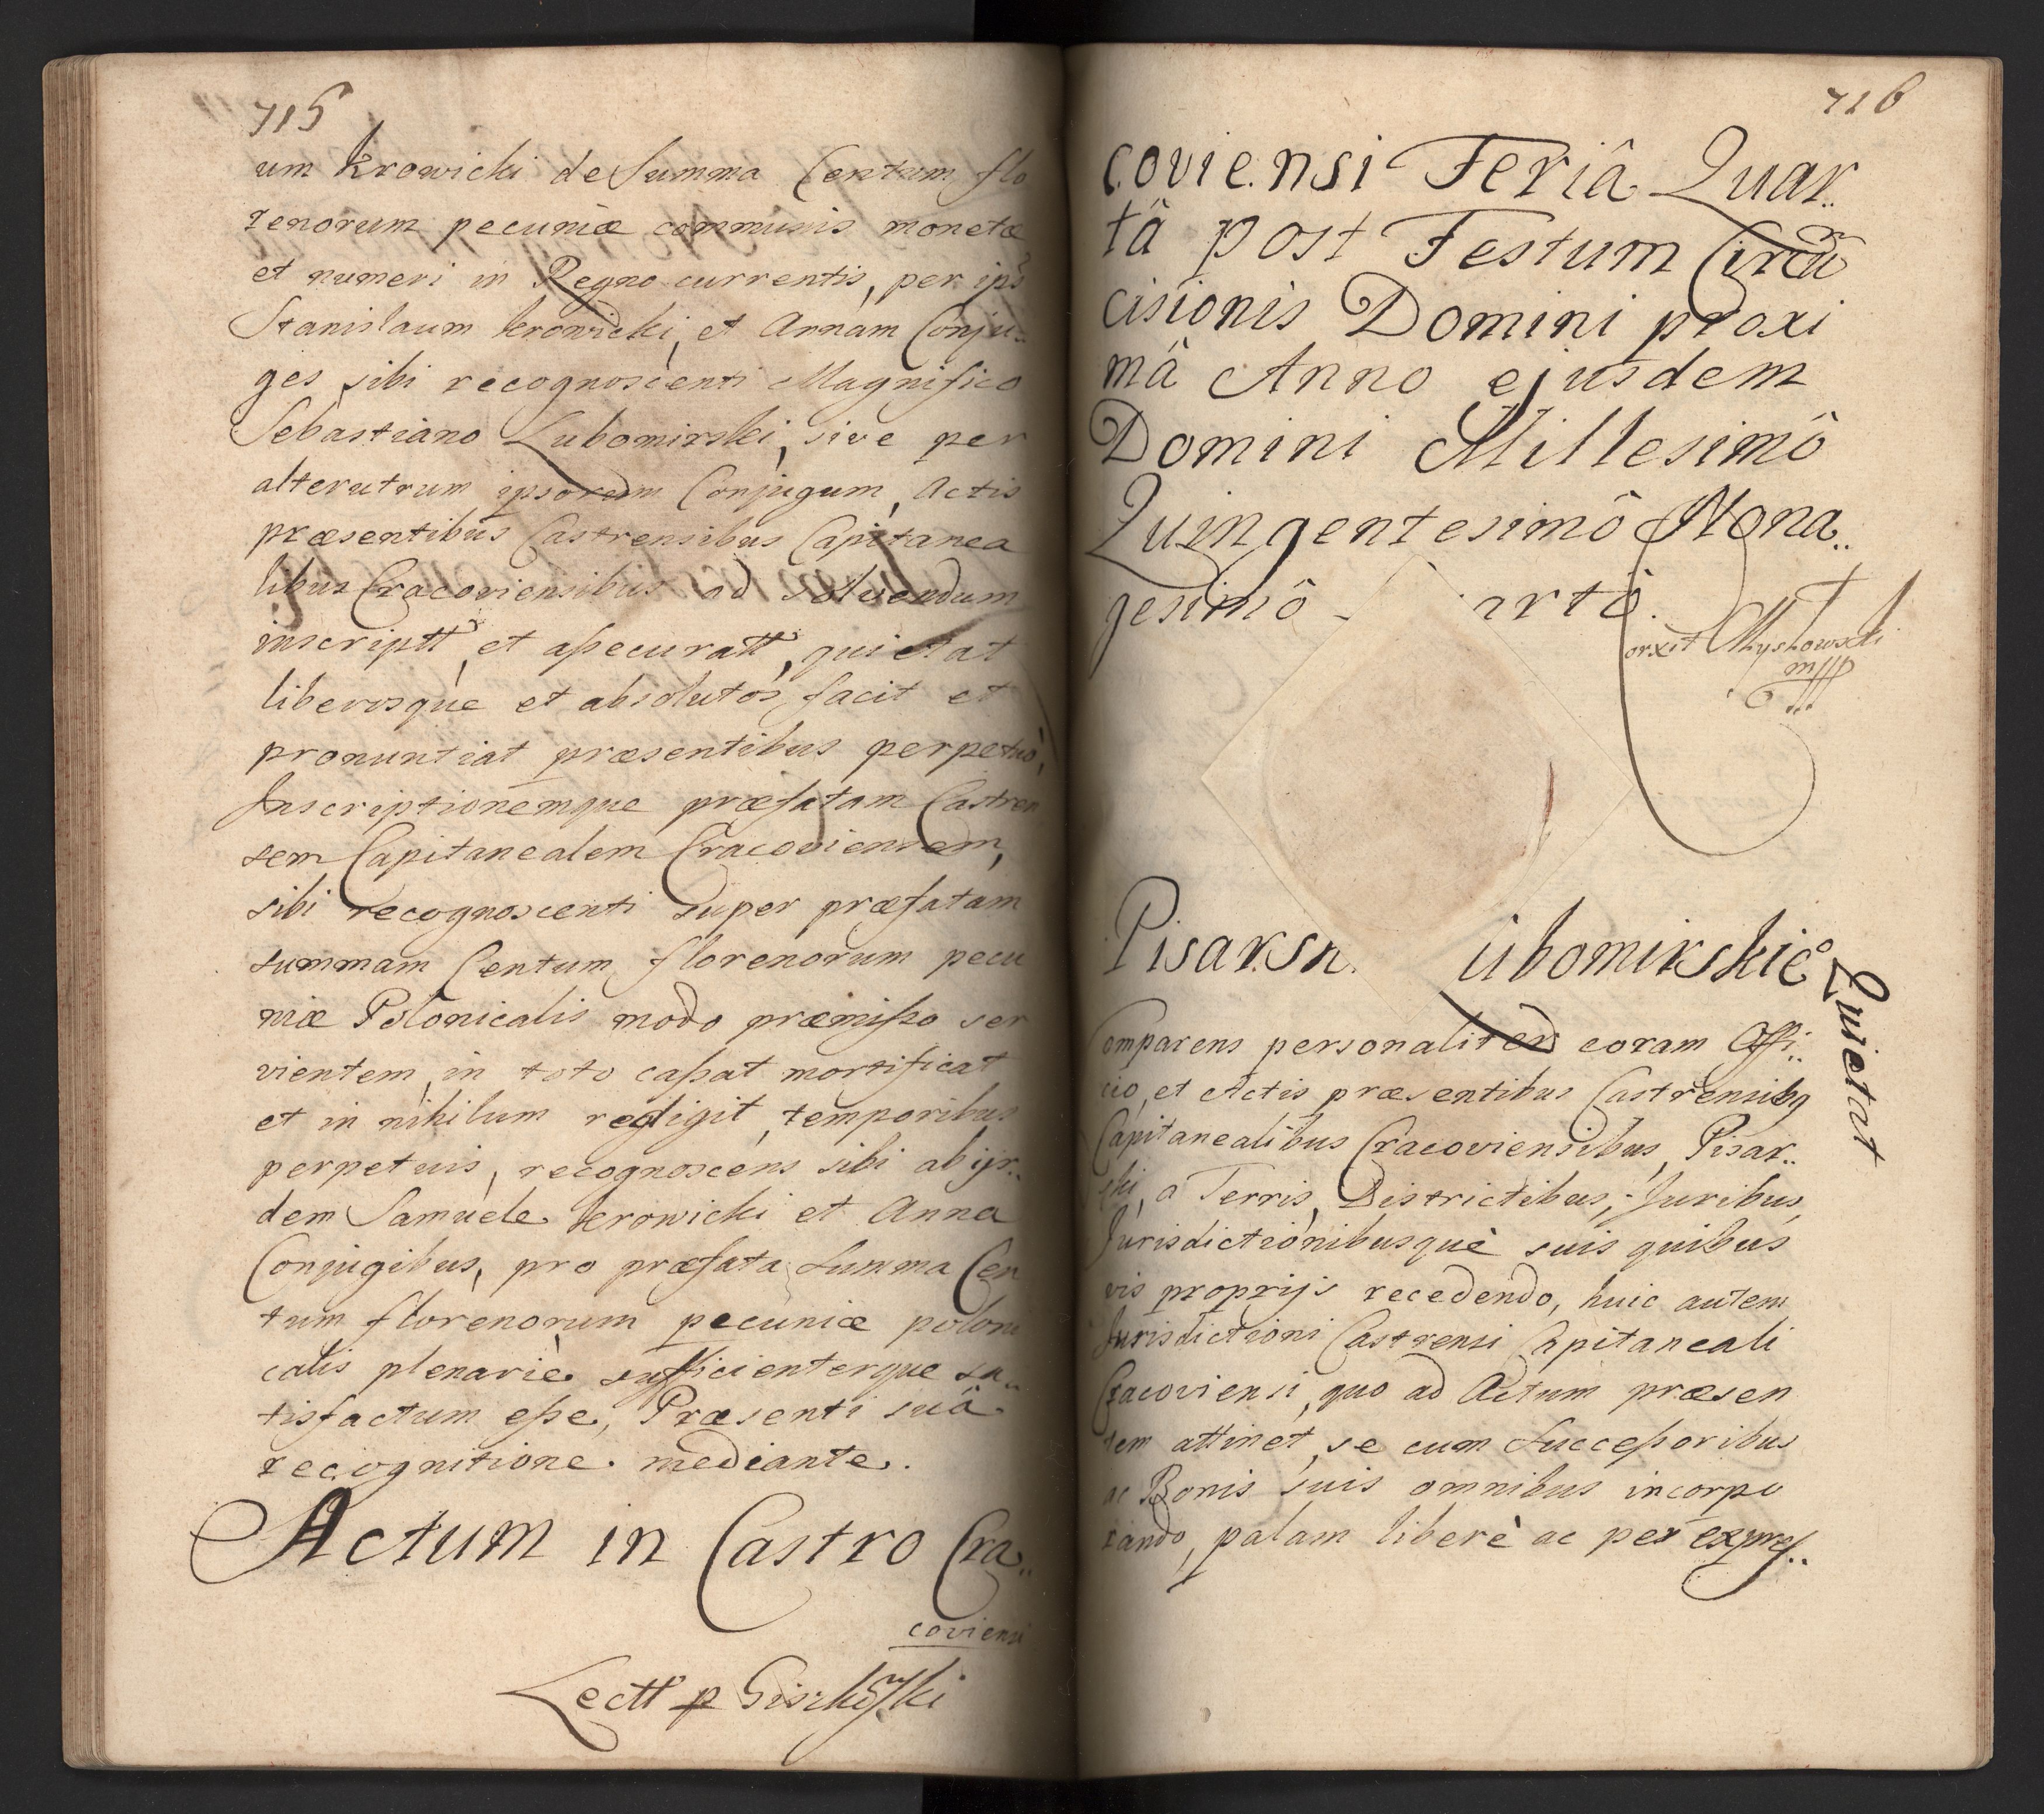 715
um Krowicki de Summa Centum flo
renorum pecuniæ communis monetæ
et numeri in Regno currentis, per ips
Stanislaum Krowicki, et Annam Conju..
ges sibi recognoscenti Magnifico
Sebastiano Lubomirski, sive per
alterutrum ipsorum Conjugum, Actis
præsentibus Castrensibus Capitanea
libus Cracoviensibus ad solvendum
inscriptt, et assecuratt, quietat
liberosque et absolutos facit et
pronuntiat præsentibus perpetuò,
Inscriptionemque præfatam Castren
sem Capitanealem Cracoviensem,
sibi recognoscenti super præfatam
summam Centum florenorum pecu
niæ Polonicalis modo præmisso ser
vientem, in toto cassat mortificat
et in nihilum redigit, temporibus
perpetuis, recognoscens sibi ab ijs..
dem Samuele Krowicki et Anna
Conjugibus, pro præfata Summa Cen
tum florenorum pecuniæ poloni
calis plenariè sufficienterque sa..
tisfactum esse, Præsenti suâ
recognitione mediante.
Actum in Castro Cra..
coviensi
Lectt p
716
coviensi Feriâ Quar..
tâ post Festum Circu
cisionis Domini proxi
mâ Anno ejusdem
Domini Millesimô
Quingentesimô Nona..
gesimô artô.
orxit Myszkowski
mpp
Pisarsk ubomirskie
Quietat
Comparens personaliter coram Offi..
cio, et Actis præsentibus Castrensibg
Capitanealibus Cracoviensibus, Pisar..
ski, a Terris, Districtibus, Juribus,
Jurisdictionibusquè suis quibus
vis proprijs recedendo, huic autem
Jurisdictioni Castrensi Capitaneali
Cracoviensi, quo ad Actum præsen
tem attinet, se cum Successoribus
ac Bonis suis omnibus incorpo
rando, palam liberè ac per expres..